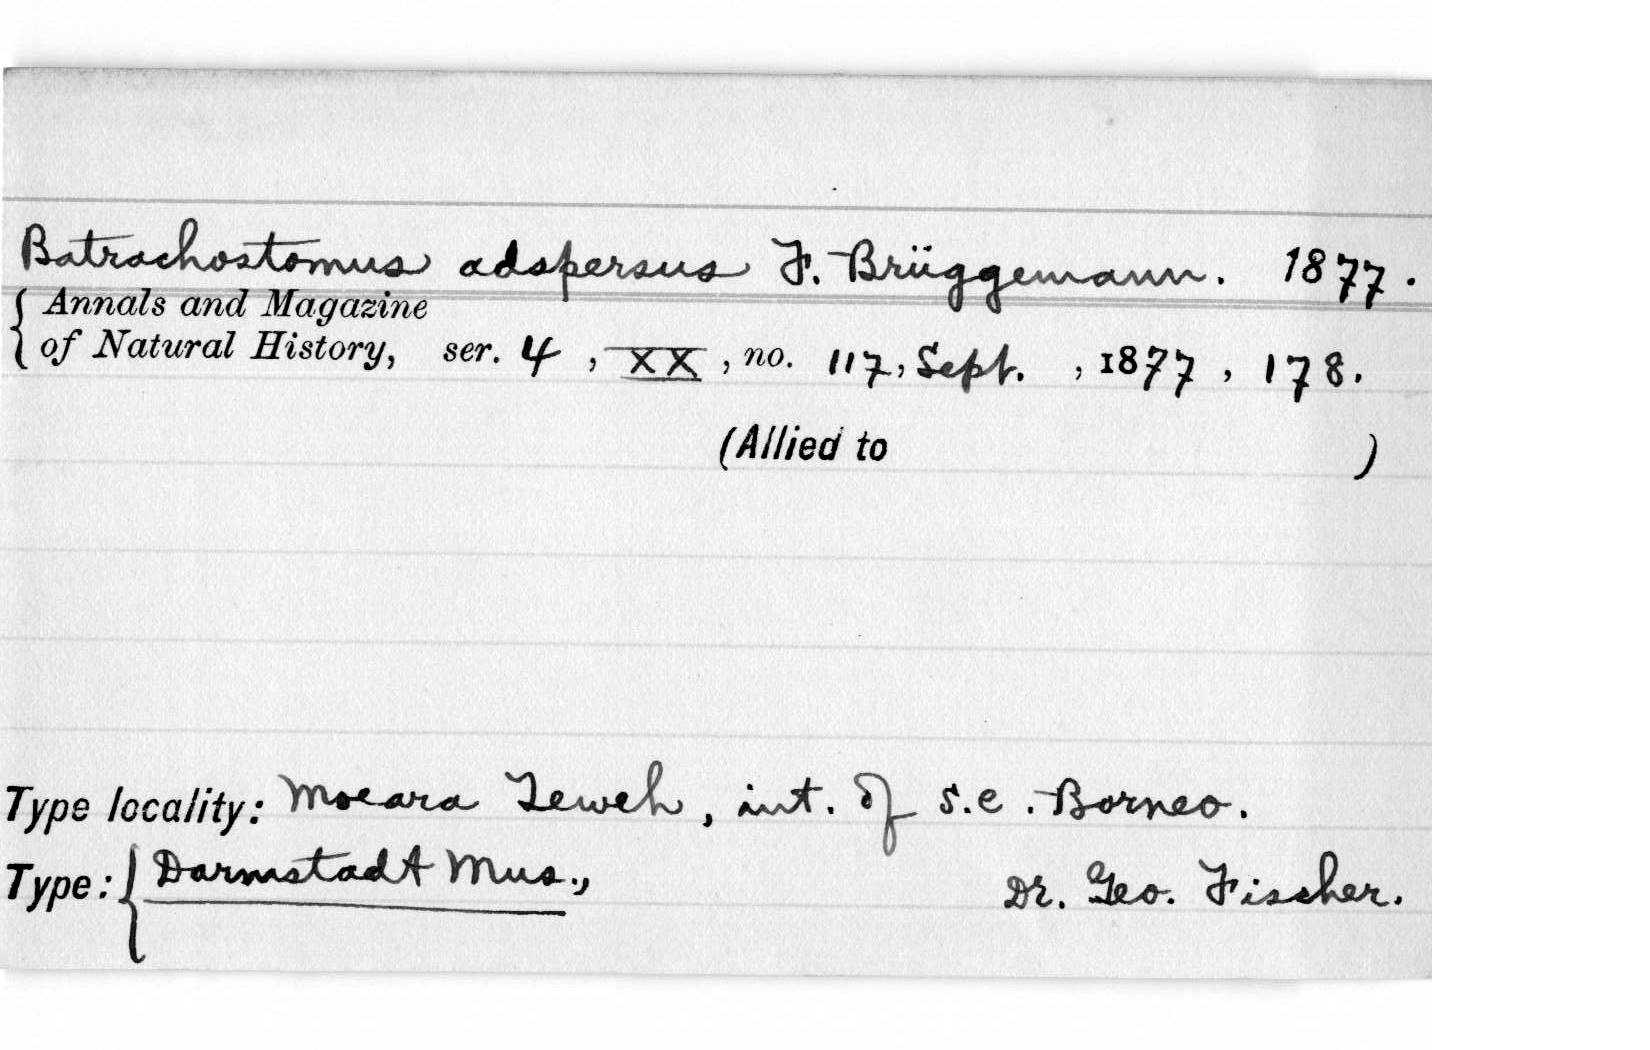 Batrachostomus adspersus F. Brüggemann. 1877.
Annals and Magazine
of Natural History, ser. 4, XX, no. 117, Sept., 1877, 178.
(Allied to )
Type locality: Moeara Teweh, int. of s.e. Borneo.
Type: Darmstadt Mus., Dr. Geo. Fischer.